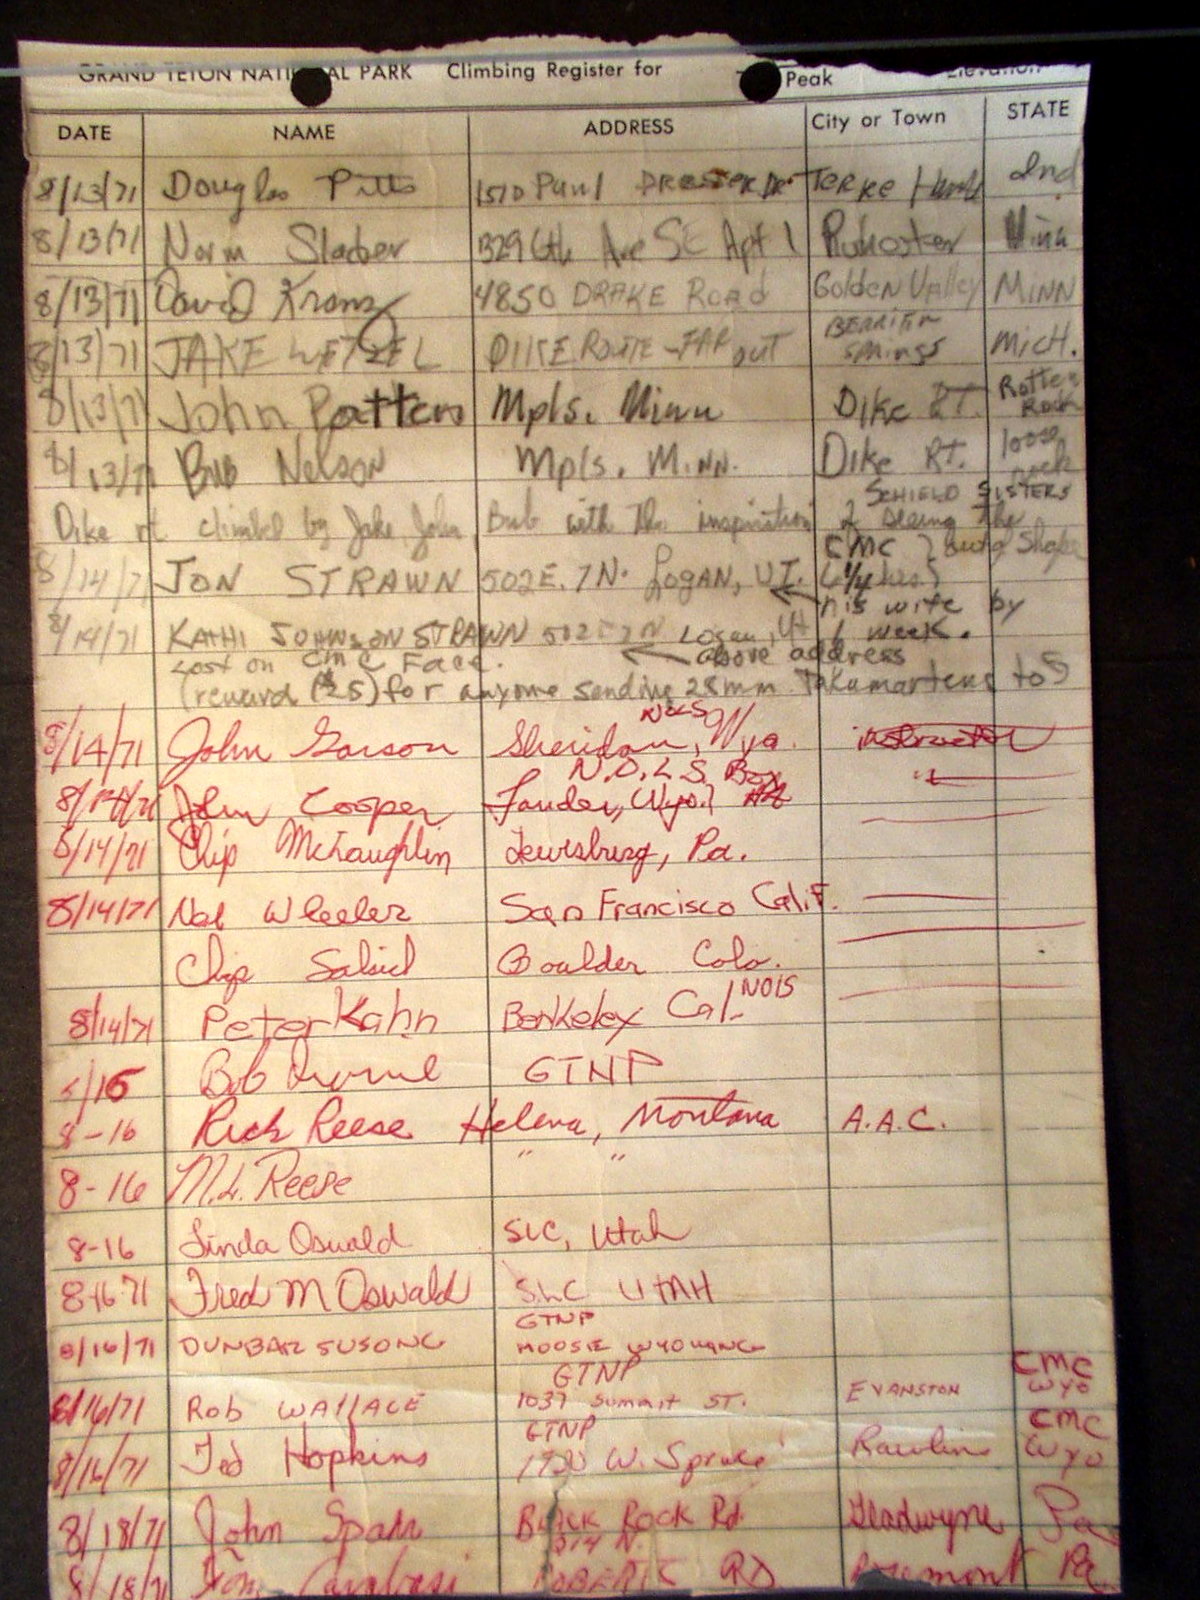 GRAND TETON NATIONAL PARK Climbing Register for Peak Elevation
DATE NAME ADDRESS City or Town STATE
8/13/71 Douglas Pitts 1570 Paul Dresser Dr. Terre Haute Ind.
8/13/71 Norm 1329 6th Ave SE Apt 1 Minn
8/13/71 David Kranz 4850 DRAKE ROAD Golden Valley MINN
8/13/71 JAKE WETZEL DIKE ROUTE - FAR out BERRIEN SPRINGS MICH.
8/13/71 John Patten Mpls. Minn Dike RT. Rotten Rock
8/13/71 Bub Nelson Mpls. Minn. Dike RT. loose rock
Dike rt climbed by Jake, John, Bub with the inspiration of seeing the SCHIELD SISTERS
8/14/71 JON STRAWN 502 E. 7 N. LOGAN, UT. CMC
his wife by 1 week.
8/14/71 KATHI JOHNSON STRAWN 502 E 7 N Logan, Ut
Lost on CMC Face. above address
(reward ($25) for anyone sending 28mm Takumar lens to
8/14/71 John Sheridan, Wyo. instructor
8/14/71 John Cooper N.O.L.S. Box Lander, Wyo. "
8/14/71 Chip McLaughlin Lewisburg, Pa.
8/14/71 Wheeler San Francisco Calif.
Chip Boulder Colo.
8/14/71 Peter Kahn Berkeley Cal. NOLS
8/15 Bob GTNP
8-16 Rick Reese Helena, Montana A.A.C.
8-16 M.L. Reese " "
8-16 Linda Oswald SLC, Utah
8-16-71 Fred M Oswald SLC UTAH
8/16/71 DUNBAR SUSONG GTNP MOOSE WYOMING
8/16/71 Rob WALLACE GTNP 1037 Summit ST. EVANSTON CMC WYO
8/16/71 Ted Hopkins GTNP W. Spruce Rawlins CMC Wyo
8/18/71 John Spahr Black Rock Rd. Gladwyne Pa
8/18/71 Tom 314 N. ROBERTS RD Rosemont Pa